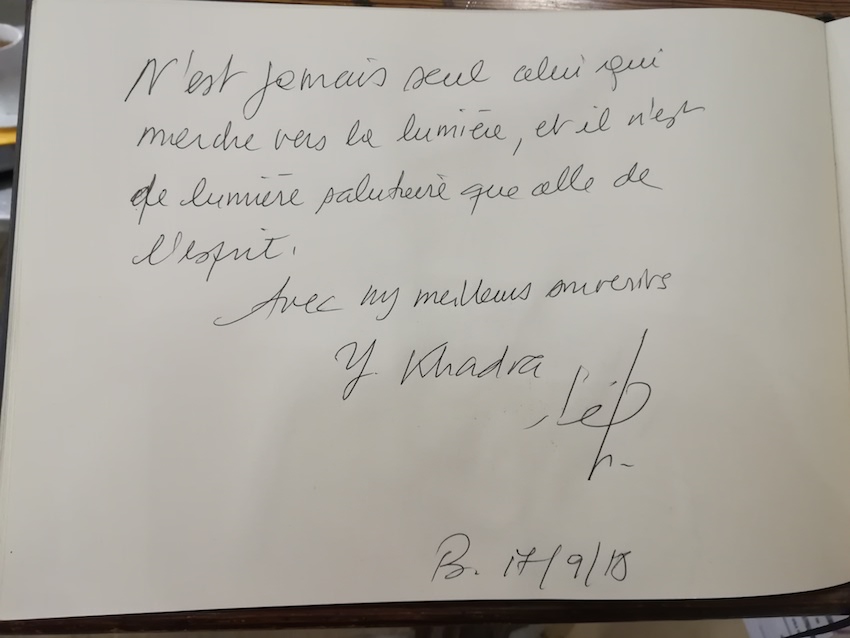 N'est jamais seul celui qui
marche vers la lumière, et il n'est
de lumière salutaire que celle de
l'esprit.
Avec mes meilleurs souvenirs
Y. Khadra
B. 17/9/18